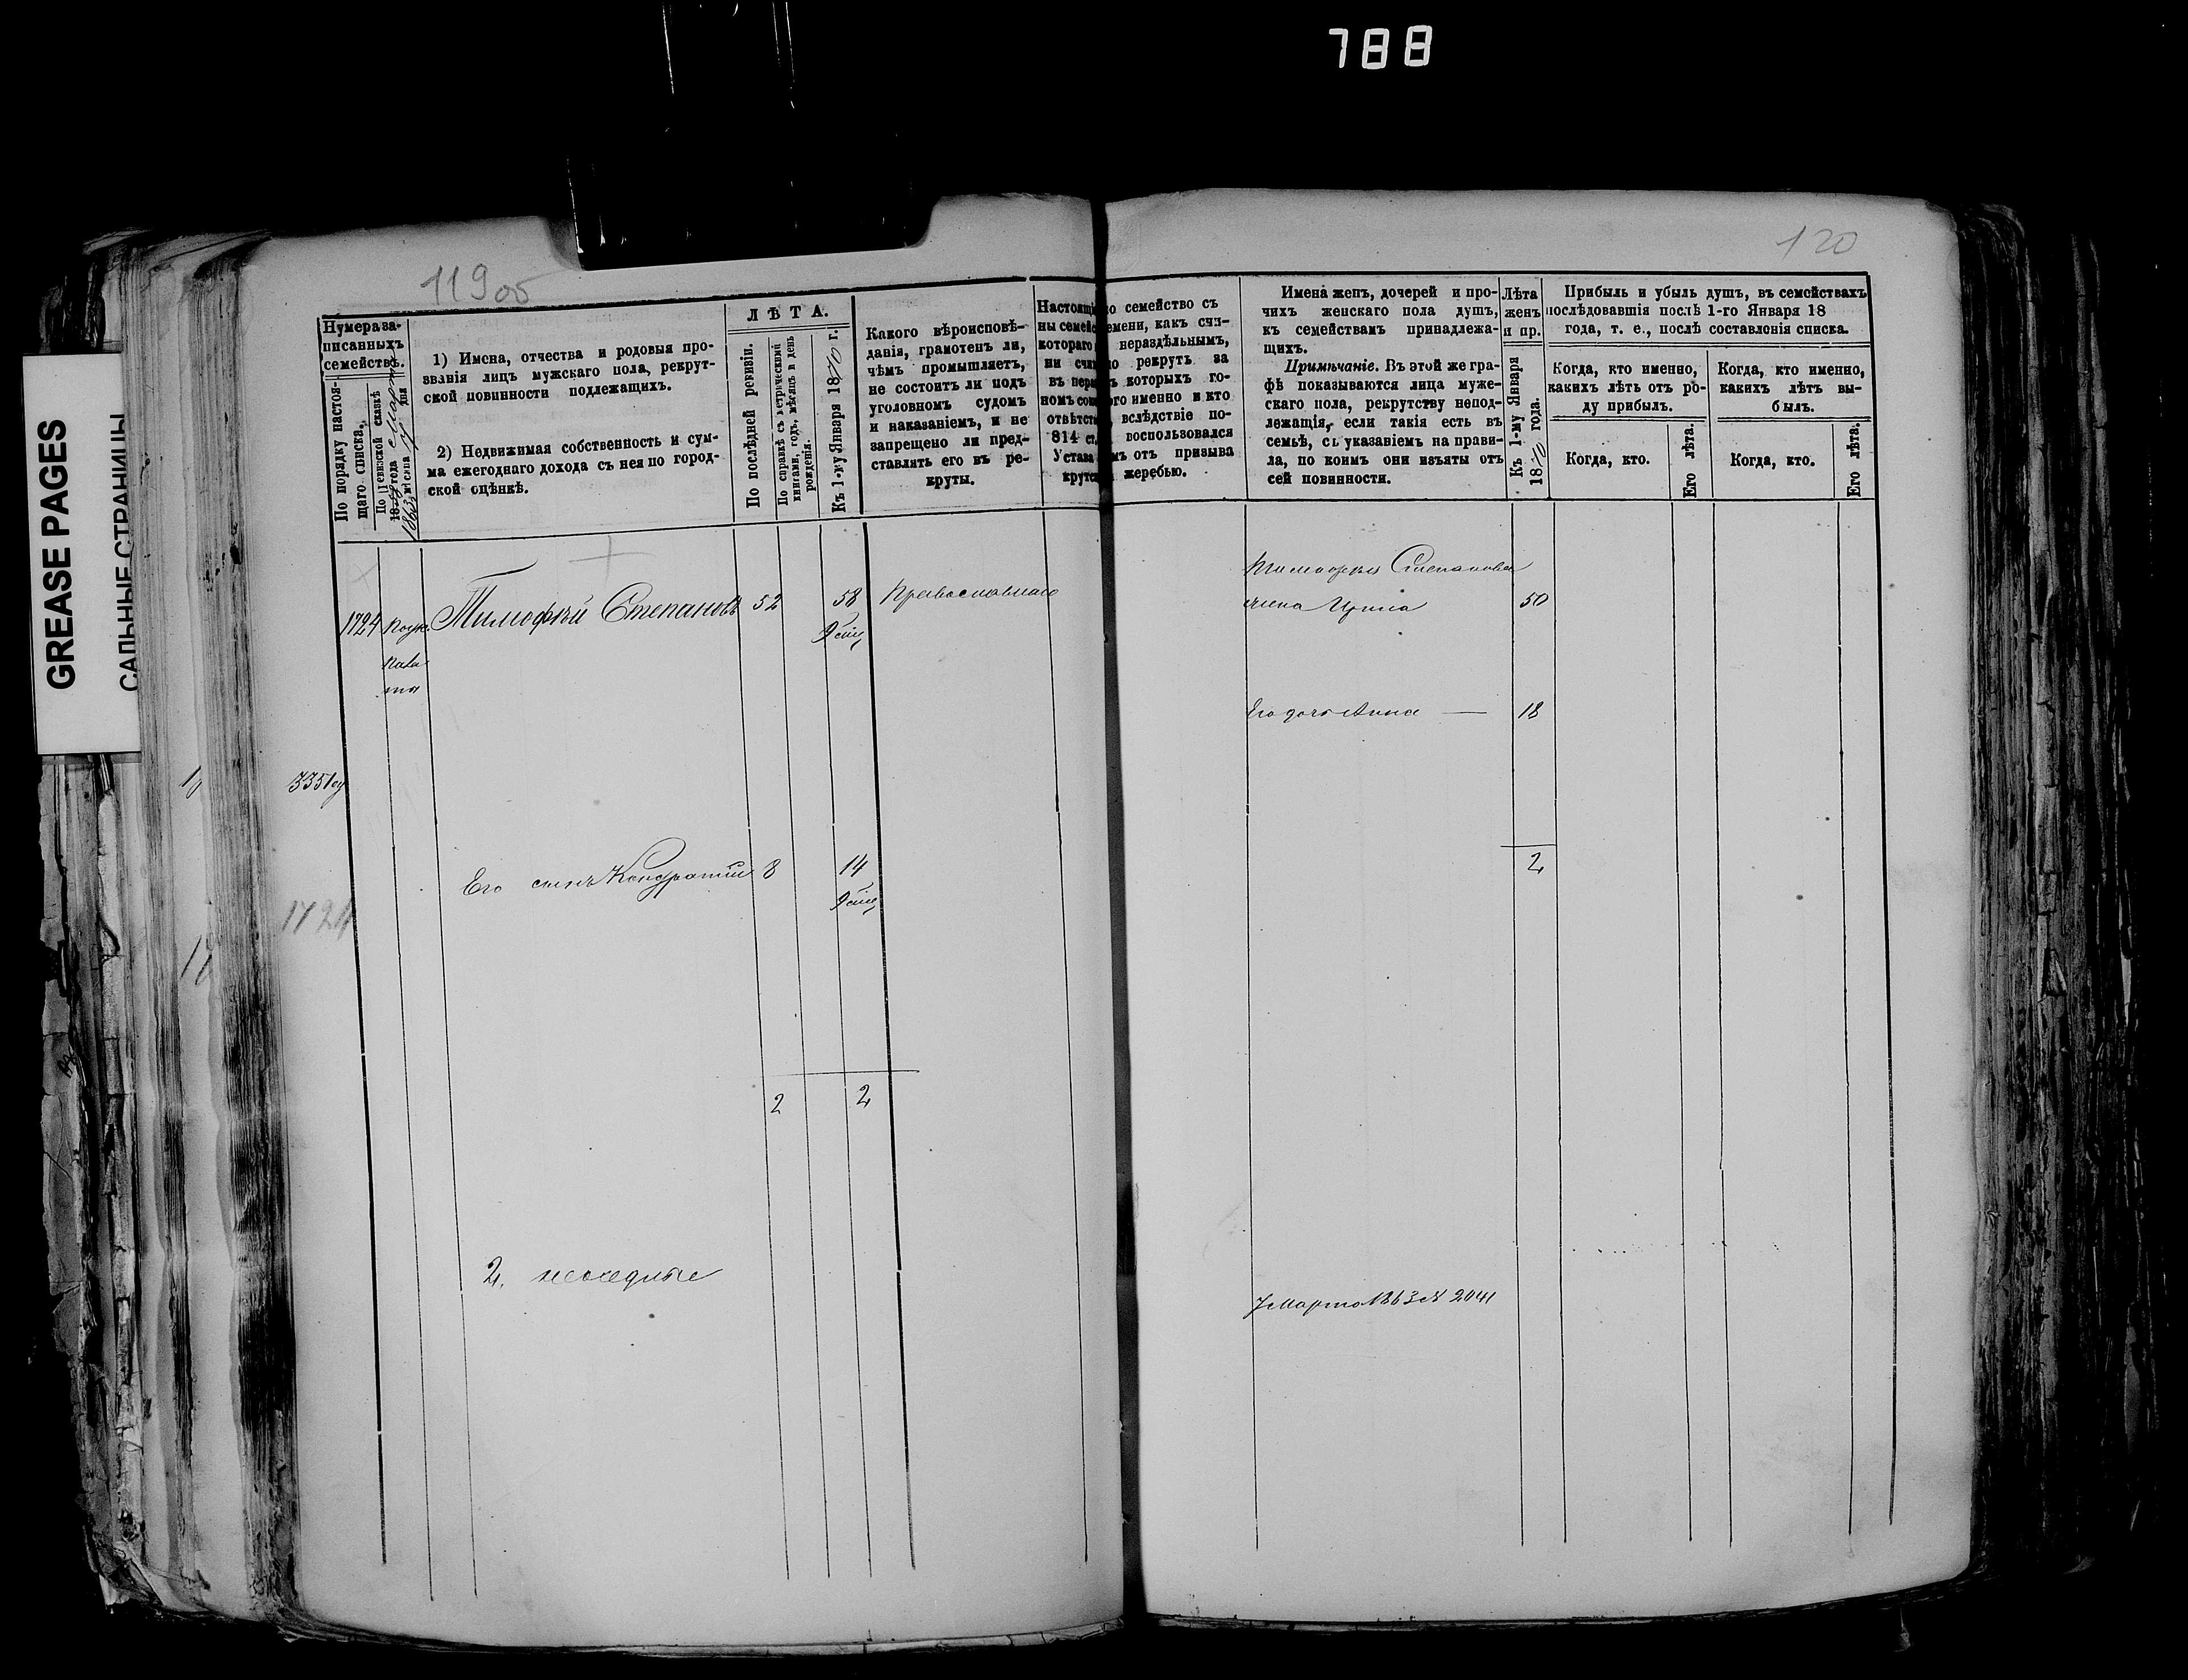 788
GREASE PAGES
САЛЬНЫЕ СТРАНИЦЫ
119об
120
Нумера за-
писанныхъ
семействъ.
По порядку настоя-
щаго списка.
По ревизской сказкѣ
18 года
мѣсяца дня
1) Имена, отчества и родовыя про-
званія лицъ мужскаго пола, рекрут-
ской повинности подлежащихъ.
2) Недвижимая собственность и сум-
ма ежегоднаго дохода съ нея по город-
ской оцѣнкѣ.
ЛѢТА.
По послѣдней ревизіи.
По справкѣ съ метрическими
книгами, годъ, мѣсяцъ и день
рожденія.
Къ 1-му Января 1870 г.
Какого вѣроисповѣ-
данія, грамотенъ ли,
чѣмъ промышляетъ,
не состоитъ ли подъ
уголовномъ судомъ
и наказаніемъ, и не
запрещено ли пред-
ставлять его въ ре-
круты.
Настоящ о семейство съ
ны семей емени, какъ счи-
котораго нераздѣльнымъ,
ни счи о рекрутъ за
въ пер которыхъ го-
номъ со го именно и кто
отвѣтст вслѣдствіе по-
814 ст. воспользовался
Устава мъ отъ призыва
крутс жеребью.
Имена женъ, дочерей и про-
чихъ женскаго пола душъ,
къ семействамъ принадлежа-
щихъ.
Примѣчаніе. Въ этой же гра-
фѣ показываются лица муже-
скаго пола, рекрутству непод-
лежащія, если такія есть въ
семьѣ, съ указаніемъ на прави-
ла, по коимъ они изъяты отъ
сей повинности.
Лѣта
женъ
и пр.
Къ 1-му Января
1870 года.
Прибыль и убыль душъ, въ семействахъ
послѣдовавшія послѣ 1-го Января 18
года, т. е., послѣ составленія списка.
Когда, кто именно,
какихъ лѣтъ отъ ро-
ду прибылъ.
Когда, кто именно,
какихъ лѣтъ вы-
былъ.
Когда, кто.
Его лѣта.
Когда, кто.
Его лѣта.
1724 Тимофѣй Степановъ 52 58 Православнаго
Тимофѣя Степанова
жена Ирина 50
Его дочь Анна — 18
2
Его сынъ Кондратій 8 14
1724
2 2
2.
7 Марта 1863 № 2041